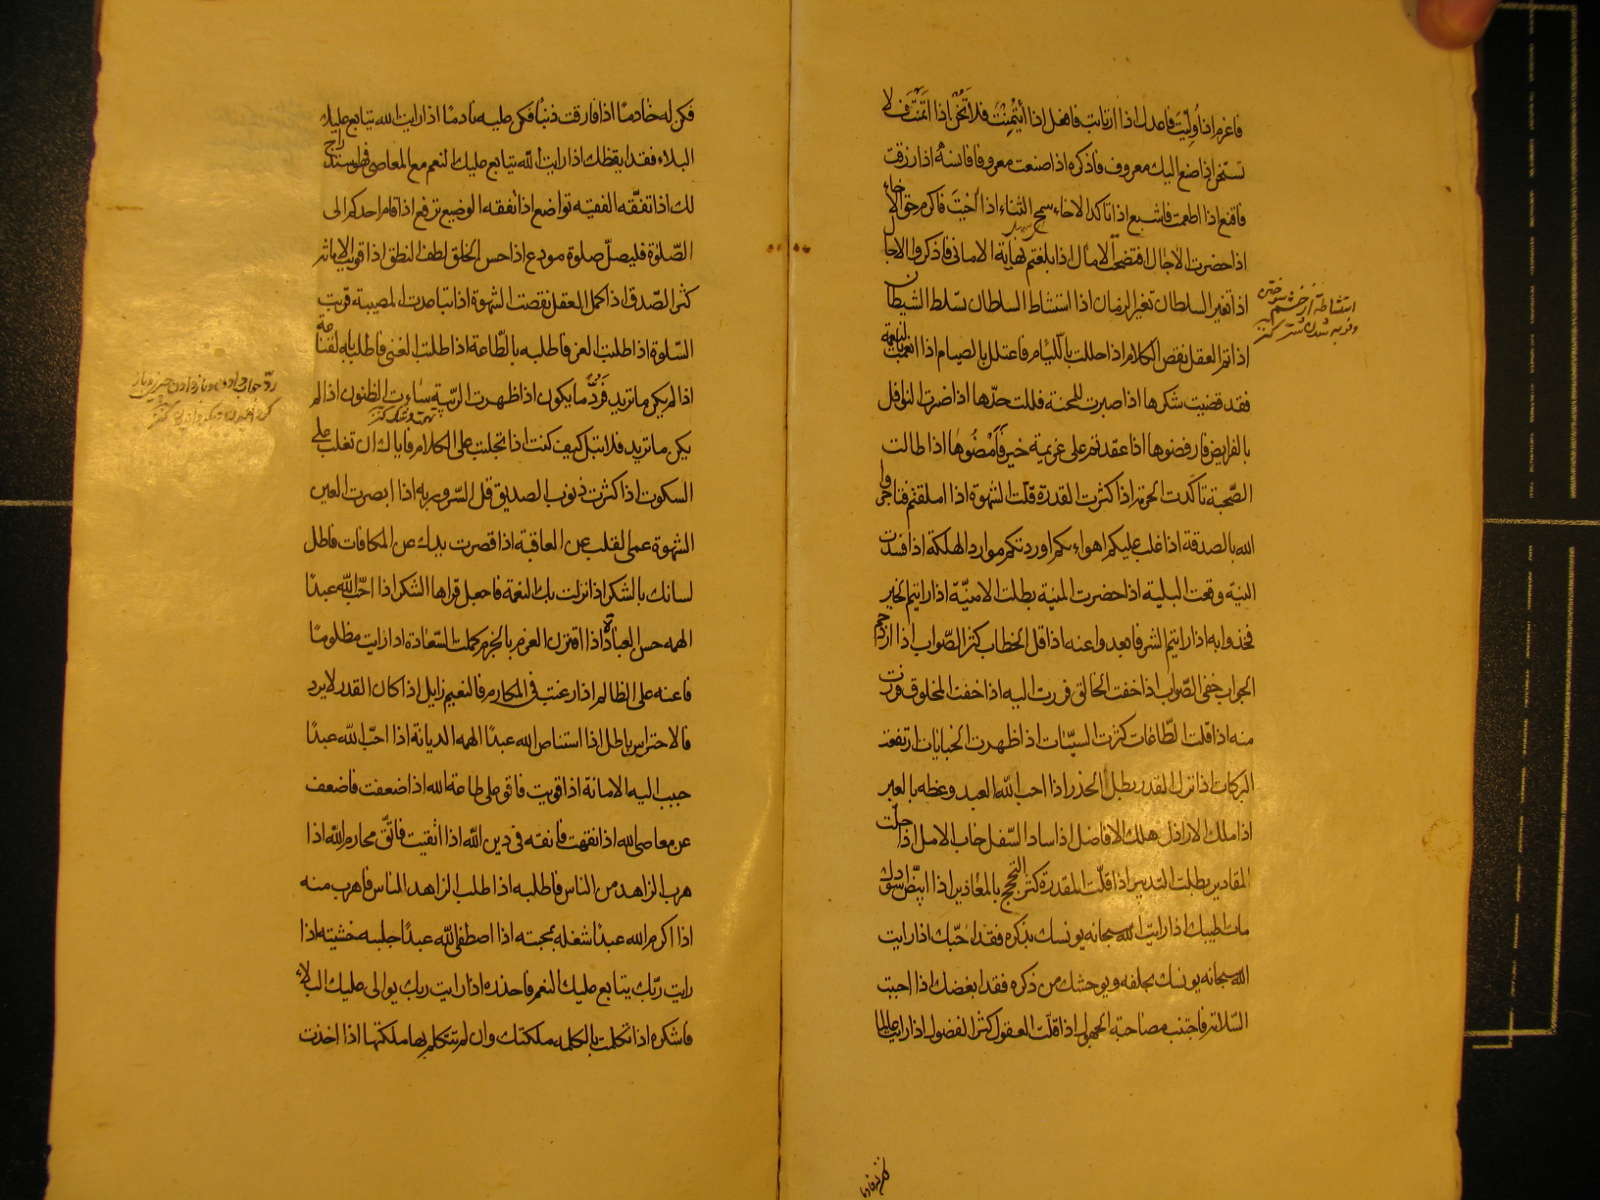 فاعزم اذا وُلّيتَ فاعدل اذا ارتابت فاهمل اذا أيتُمِنْتَ فلا تَخُنْ اذا ائتمنت فلا
تستخن اذا صنع اليك معروف فاذكره اذا صنعت معروفا فانسهُ اذا رزقت
فاقنع اذا اطعمت فاشبع اذا تاكد الاخاء سمج الثناء اذا اٰخيتَ فاكرم حق الاخاء
اذا حضرت الاٰجال افتضحت الامال اذا بلغتم نهاية الامانى فاذكروا الاجا
اذا تغير السلطان تغير الزمان اذا استشاط السلطان تسلط الشيطان
استشاطة از خشم
اذا تم العقل نقص الكلام اذا حللت باللّيام فاعتلل بالصيام اذا انعمت بالنعمة
فقد قضيت شكرها اذا صبرت للمحنة فللت حدّها اذا اضرت النوافل
بالفرايض فارفضوها اذا عقدتم على عزيمة خير فَاَمْضُوهَا اذا طالت
الصّحبة تاكدت الحرمة اذا كثرت القدرة قلّت الشهوة اذا املقتم فتاجروا
الله بالصدقة اذا غلب عليكم اهواءكم اوردتكم موارد الهلكة اذا فسدت
النيّة وقعت البلية اذا حضرت المنية بطلت الامنيّة اذا رايتم الخير
فخذوا به اذا رايتم الشر فابعدوا عنه اذا قل الخطاب كثر الصّواب اذا ازدحم
الجواب خفى الصّواب اذا خفت الخالق فررت اليه اذا خفت المخلوق فررت
منه اذا قلت الطّاعات كثرت السيّئات اذا ظهرت الجنايات ارتفعت
البركات اذا نزل القدر بطل الحذر اذا احب اللّٰه العبد وعظه بالعبر
اذا ملك الاراذل هلك الافاضل اذا ساد السّفل خاب الامل اذا حلّت
المقادير بطلت التدبير اذا قلّت المقدرة كثر التحجج بالمعاذير اذا ابيضّ اسودك
مات طيبك اذا رايت اللّٰه سبحانه يونسك بذكره فقد احبّك اذا رايت
اللّٰه سبحانه يونسك بخلقه ويوحشك من ذكره فقد ابغضك اذا احببت
السّلامة فاجتنب مصاحبة الجهول اذا قلّت العقول كثر الفضول اذا رايت عالما
فكن له خادمًا
فكن له خادمًا اذا فارقت ذنبًا فكن عليه نادمًا اذا رايت اللّٰه يتابع عليك
البلاء فقد ايقظك اذا رايت اللّٰه يتابع عليك النعم مع المعاصى فهو استدراج
لك اذا تفقّه الفقيه تواضع اذا تفقه الوضيع ترفع اذا قام احدكم الى
الصّلوٰة فليصلّ صلوة مودع اذا حسن الخلق لطف النطق اذا قويت الامانة
كثر الصّدق اذا كمل العقل نقصت الشهوة اذا تباعدت المصيبة قربت
السّلوة اذا طلبت العز فاطلبه بالطّاعة اذا طلبت الغنى فاطلبه بالقناعة
اذا لم يكن ما تريد فَرُدَّ ما يكون اذا ظهرت الرّيبة ساءت الظنون اذا لم
يكن ما تريد فلا تبل كيف كنت اذا غلبت على الكلام فاياك ان تغلب على
السكوت اذا كثرت ذنوب الصديق قل السّرور به اذا ابصرت العين
الشهوة عمى القلب عن العاقبة اذا قصرت يدك عن المكافات فاطل
لسانك بالشكر اذا نزلت بك النعمة فاجعل قراها الشكر اذا احبّ اللّٰه عبدًا
الهمه حسن العبادة اذا اقترن العزم بالحزم كملت السّعادة اذا رايت مظلومًا
فاعنه على الظالم اذا رغبت فى المكارم فالنعيم زايل اذا كان القدر لا يرد
فالاحتراس باطل اذا استناص اللّٰه عبدًا الهمه الديانة اذا احبّ اللّٰه عبدًا
حبب اليه الامانة اذا قويت فاقو على طاعة اللّٰه اذا ضعفت فاضعف
عن معاصى اللّٰه اذا تفقهت فاتفقه فى دين اللّٰه اذا اتّقيت فاتّق محارم اللّٰه اذا
هرب الزاهد من الناس فاطلبه اذا طلب الزاهد الناس فاهرب منه
اذا اكرم اللّٰه عبدًا شغله بمحبته اذا اصطفى اللّٰه عبدًا جلببه خشيته اذا
رايت ربّك يتابع عليك النعم فاحذره اذا رايت ربك يوالى عليك البلاء
فاشكره اذا تكلمت بالكلمة ملكتك وان لم تتكلم بها ملكتها اذا اخذت